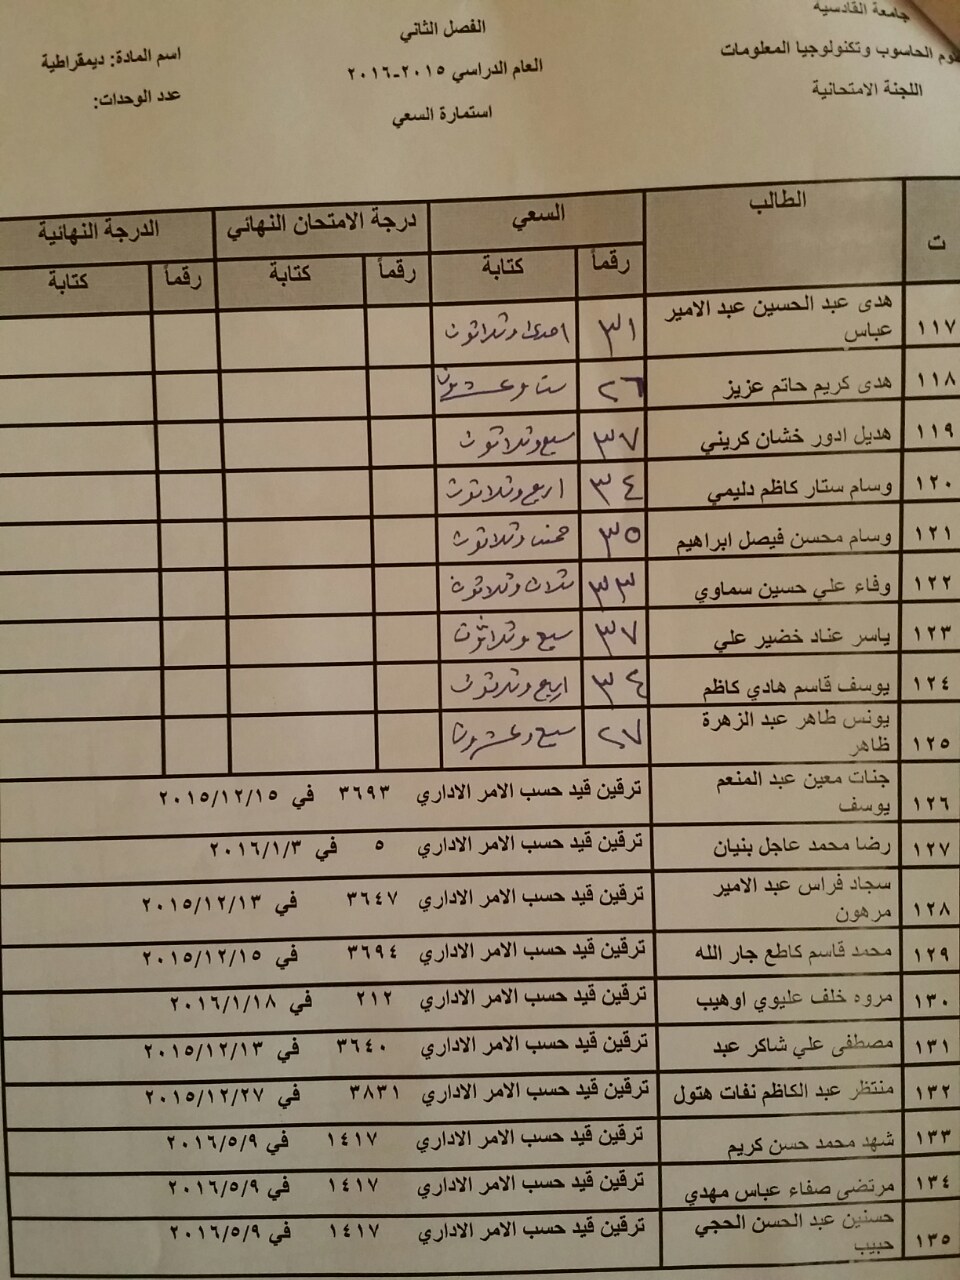 جامعة القادسيه
الفصل الثاني
علوم الحاسوب وتكنولوجيا المعلومات
العام الدراسي ٢٠١٥-٢٠١٦
اسم المادة: ديمقراطية
اللجنة الامتحانية
استمارة السعي
عدد الوحدات:
ت الطالب السعي درجة الامتحان النهائي الدرجة النهائية
رقماً كتابة رقماً كتابة رقماً كتابة
١١٧ هدى عبد الحسين عبد الامير عباس ٣١ احدى وثلاثون
١١٨ هدى كريم حاتم عزيز ٢٦ ست وعشرون
١١٩ هديل ادور خشان كريني ٣٧ سبع وثلاثون
١٢٠ وسام ستار كاظم دليمي ٣٤ اربع وثلاثون
١٢١ وسام محسن فيصل ابراهيم ٣٥ خمس وثلاثون
١٢٢ وفاء علي حسين سماوي ٣٣ ثلاث وثلاثون
١٢٣ ياسر عناد خضير علي ٣٧ سبع وثلاثون
١٢٤ يوسف قاسم هادي كاظم ٣٤ اربع وثلاثون
١٢٥ يونس طاهر عبد الزهرة ظاهر ٢٧ سبع وعشرون
١٢٦ جنات معين عبد المنعم يوسف ترقين قيد حسب الامر الاداري ٣٦٩٣ في ٢٠١٥/١٢/١٥
١٢٧ رضا محمد عاجل بنيان ترقين قيد حسب الامر الاداري ٥ في ٢٠١٦/١/٣
١٢٨ سجاد فراس عبد الامير مرهون ترقين قيد حسب الامر الاداري ٣٦٤٧ في ٢٠١٥/١٢/١٣
١٢٩ محمد قاسم كاطع جار الله ترقين قيد حسب الامر الاداري ٣٦٩٤ في ٢٠١٥/١٢/١٥
١٣٠ مروه خلف عليوي اوهيب ترقين قيد حسب الامر الاداري ٢١٢ في ٢٠١٦/١/١٨
١٣١ مصطفى علي شاكر عبد ترقين قيد حسب الامر الاداري ٣٦٤٠ في ٢٠١٥/١٢/١٣
١٣٢ منتظر عبد الكاظم نفات هتول ترقين قيد حسب الامر الاداري ٣٨٣١ في ٢٠١٥/١٢/٢٧
١٣٣ شهد محمد حسن كريم ترقين قيد حسب الامر الاداري ١٤١٧ في ٢٠١٦/٥/٩
١٣٤ مرتضى صفاء عباس مهدي ترقين قيد حسب الامر الاداري ١٤١٧ في ٢٠١٦/٥/٩
١٣٥ حسنين عبد الحسن الحجي حبيب ترقين قيد حسب الامر الاداري ١٤١٧ في ٢٠١٦/٥/٩